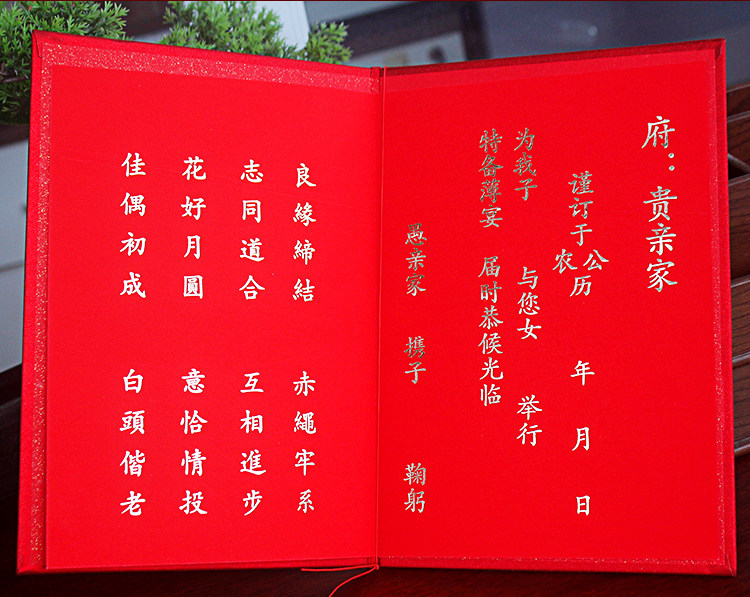 府：贵亲家
谨订于公历农 年 月 日
为我子 与您女 举行
特备薄宴 届时恭候光临
愚亲家 携子 鞠躬
良緣締結 赤繩牢系
志同道合 互相進步
花好月圓 意恰情投
佳偶初成 白頭偕老